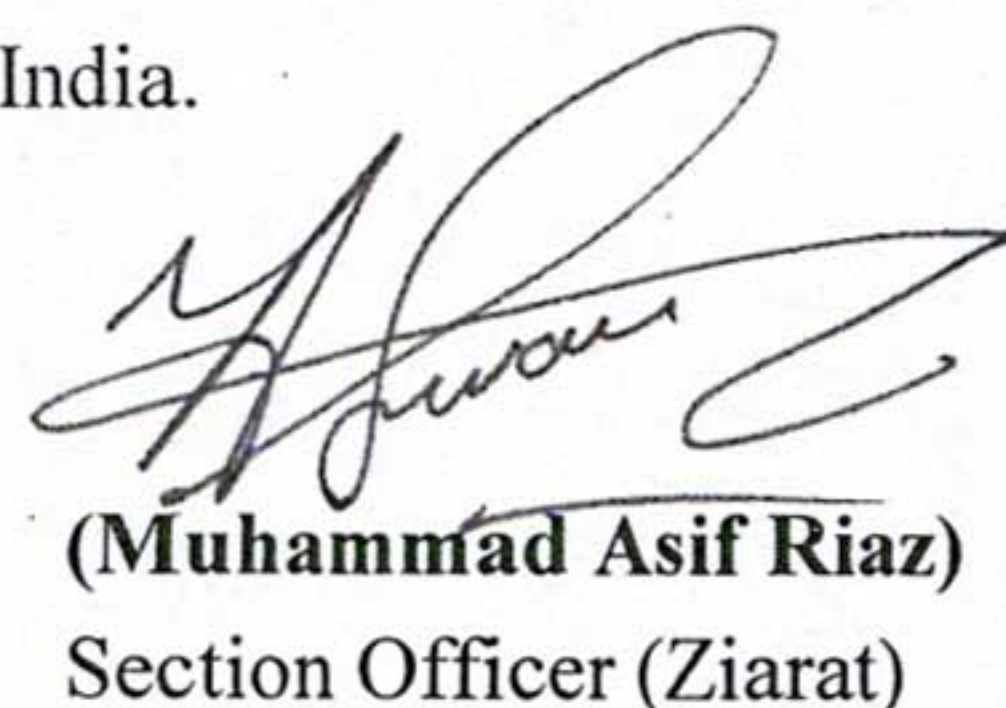 India.
(Muhammad Asif Riaz)
Section Officer (Ziarat)